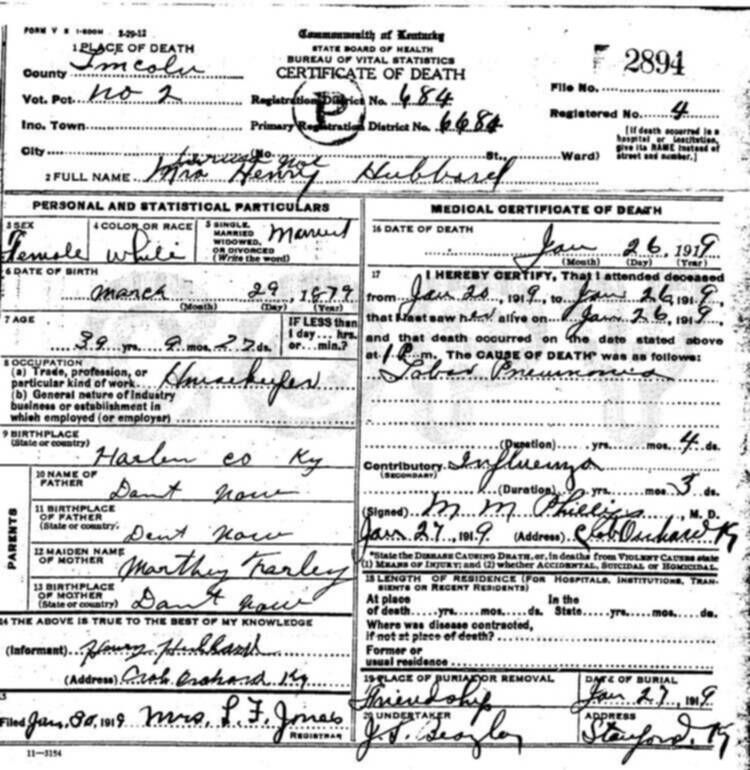 FORM V S 1-600M 2-29-12
1 PLACE OF DEATH
County Lincoln
Vot. Pct. No 2
Inc. Town
City (No. St., Ward)
Commonwealth of Kentucky
STATE BOARD OF HEALTH
BUREAU OF VITAL STATISTICS
CERTIFICATE OF DEATH
Registration District No. 684
P
Primary Registration District No. 6684
F 2894
File No.
Registered No. 4
[If death occurred in a
hospital or institution,
give its NAME instead of
street and number.]
2 FULL NAME Mrs Henry Hubbard
PERSONAL AND STATISTICAL PARTICULARS
3 SEX
Female
4 COLOR OR RACE
White
5 SINGLE,
MARRIED
WIDOWED,
OR DIVORCED
(Write the word)
Married
6 DATE OF BIRTH
March 29, 1879
(Month) (Day) (Year)
7 AGE
39 yrs. 9 mos. 27 ds.
IF LESS than
1 day... hrs.
or... min.?
8 OCCUPATION
(a) Trade, profession, or
particular kind of work Housekeeper
(b) General nature of Industry
business or establishment in
which employed (or employer)
9 BIRTHPLACE
(State or country)
Harlen co Ky
PARENTS
10 NAME OF
FATHER
Dant now
11 BIRTHPLACE
OF FATHER
(State or country)
Dent now
12 MAIDEN NAME
OF MOTHER
Marthey Farley
13 BIRTHPLACE
OF MOTHER
(State or country)
Dant now
14 THE ABOVE IS TRUE TO THE BEST OF MY KNOWLEDGE
(Informant) Henry Hubbard
(Address) Crab Orchard Ky
Filed Jan, 30, 1919 Mrs. L. F. Jones
REGISTRAR
11-3154
MEDICAL CERTIFICATE OF DEATH
16 DATE OF DEATH
Jan 26, 1919
(Month) (Day) (Year)
17 I HEREBY CERTIFY, That I attended deceased
from Jan 20, 1919, to Jan 26, 1919,
that I last saw her alive on Jan 26, 1919,
and that death occurred on the date stated above
at 1 P m. The CAUSE OF DEATH* was as follows:
Lobar Pneumonia
(Duration) yrs. mos. 4 ds.
Contributory Influenza
(SECONDARY)
(Duration) yrs. mos. 3 ds.
(Signed) M M Phillips, M. D.
Jan 27, 1919 (Address) Crab Orchard Ky
*State the DISEASE CAUSING DEATH, or, in deaths from VIOLENT CAUSES state
(1) MEANS OF INJURY; and (2) whether ACCIDENTAL, SUICIDAL OR HOMICIDAL.
18 LENGTH OF RESIDENCE (FOR HOSPITALS, INSTITUTIONS, TRANSIENTS OR RECENT RESIDENTS)
At place In the
of death... yrs. mos. ds. State... yrs. mos. ds.
Where was disease contracted,
if not at place of death?
Former or
usual residence
19 PLACE OF BURIAL OR REMOVAL
Friendship
DATE OF BURIAL
Jan 27, 1919
20 UNDERTAKER
J. T. Beazley
ADDRESS
Stanford, Ky